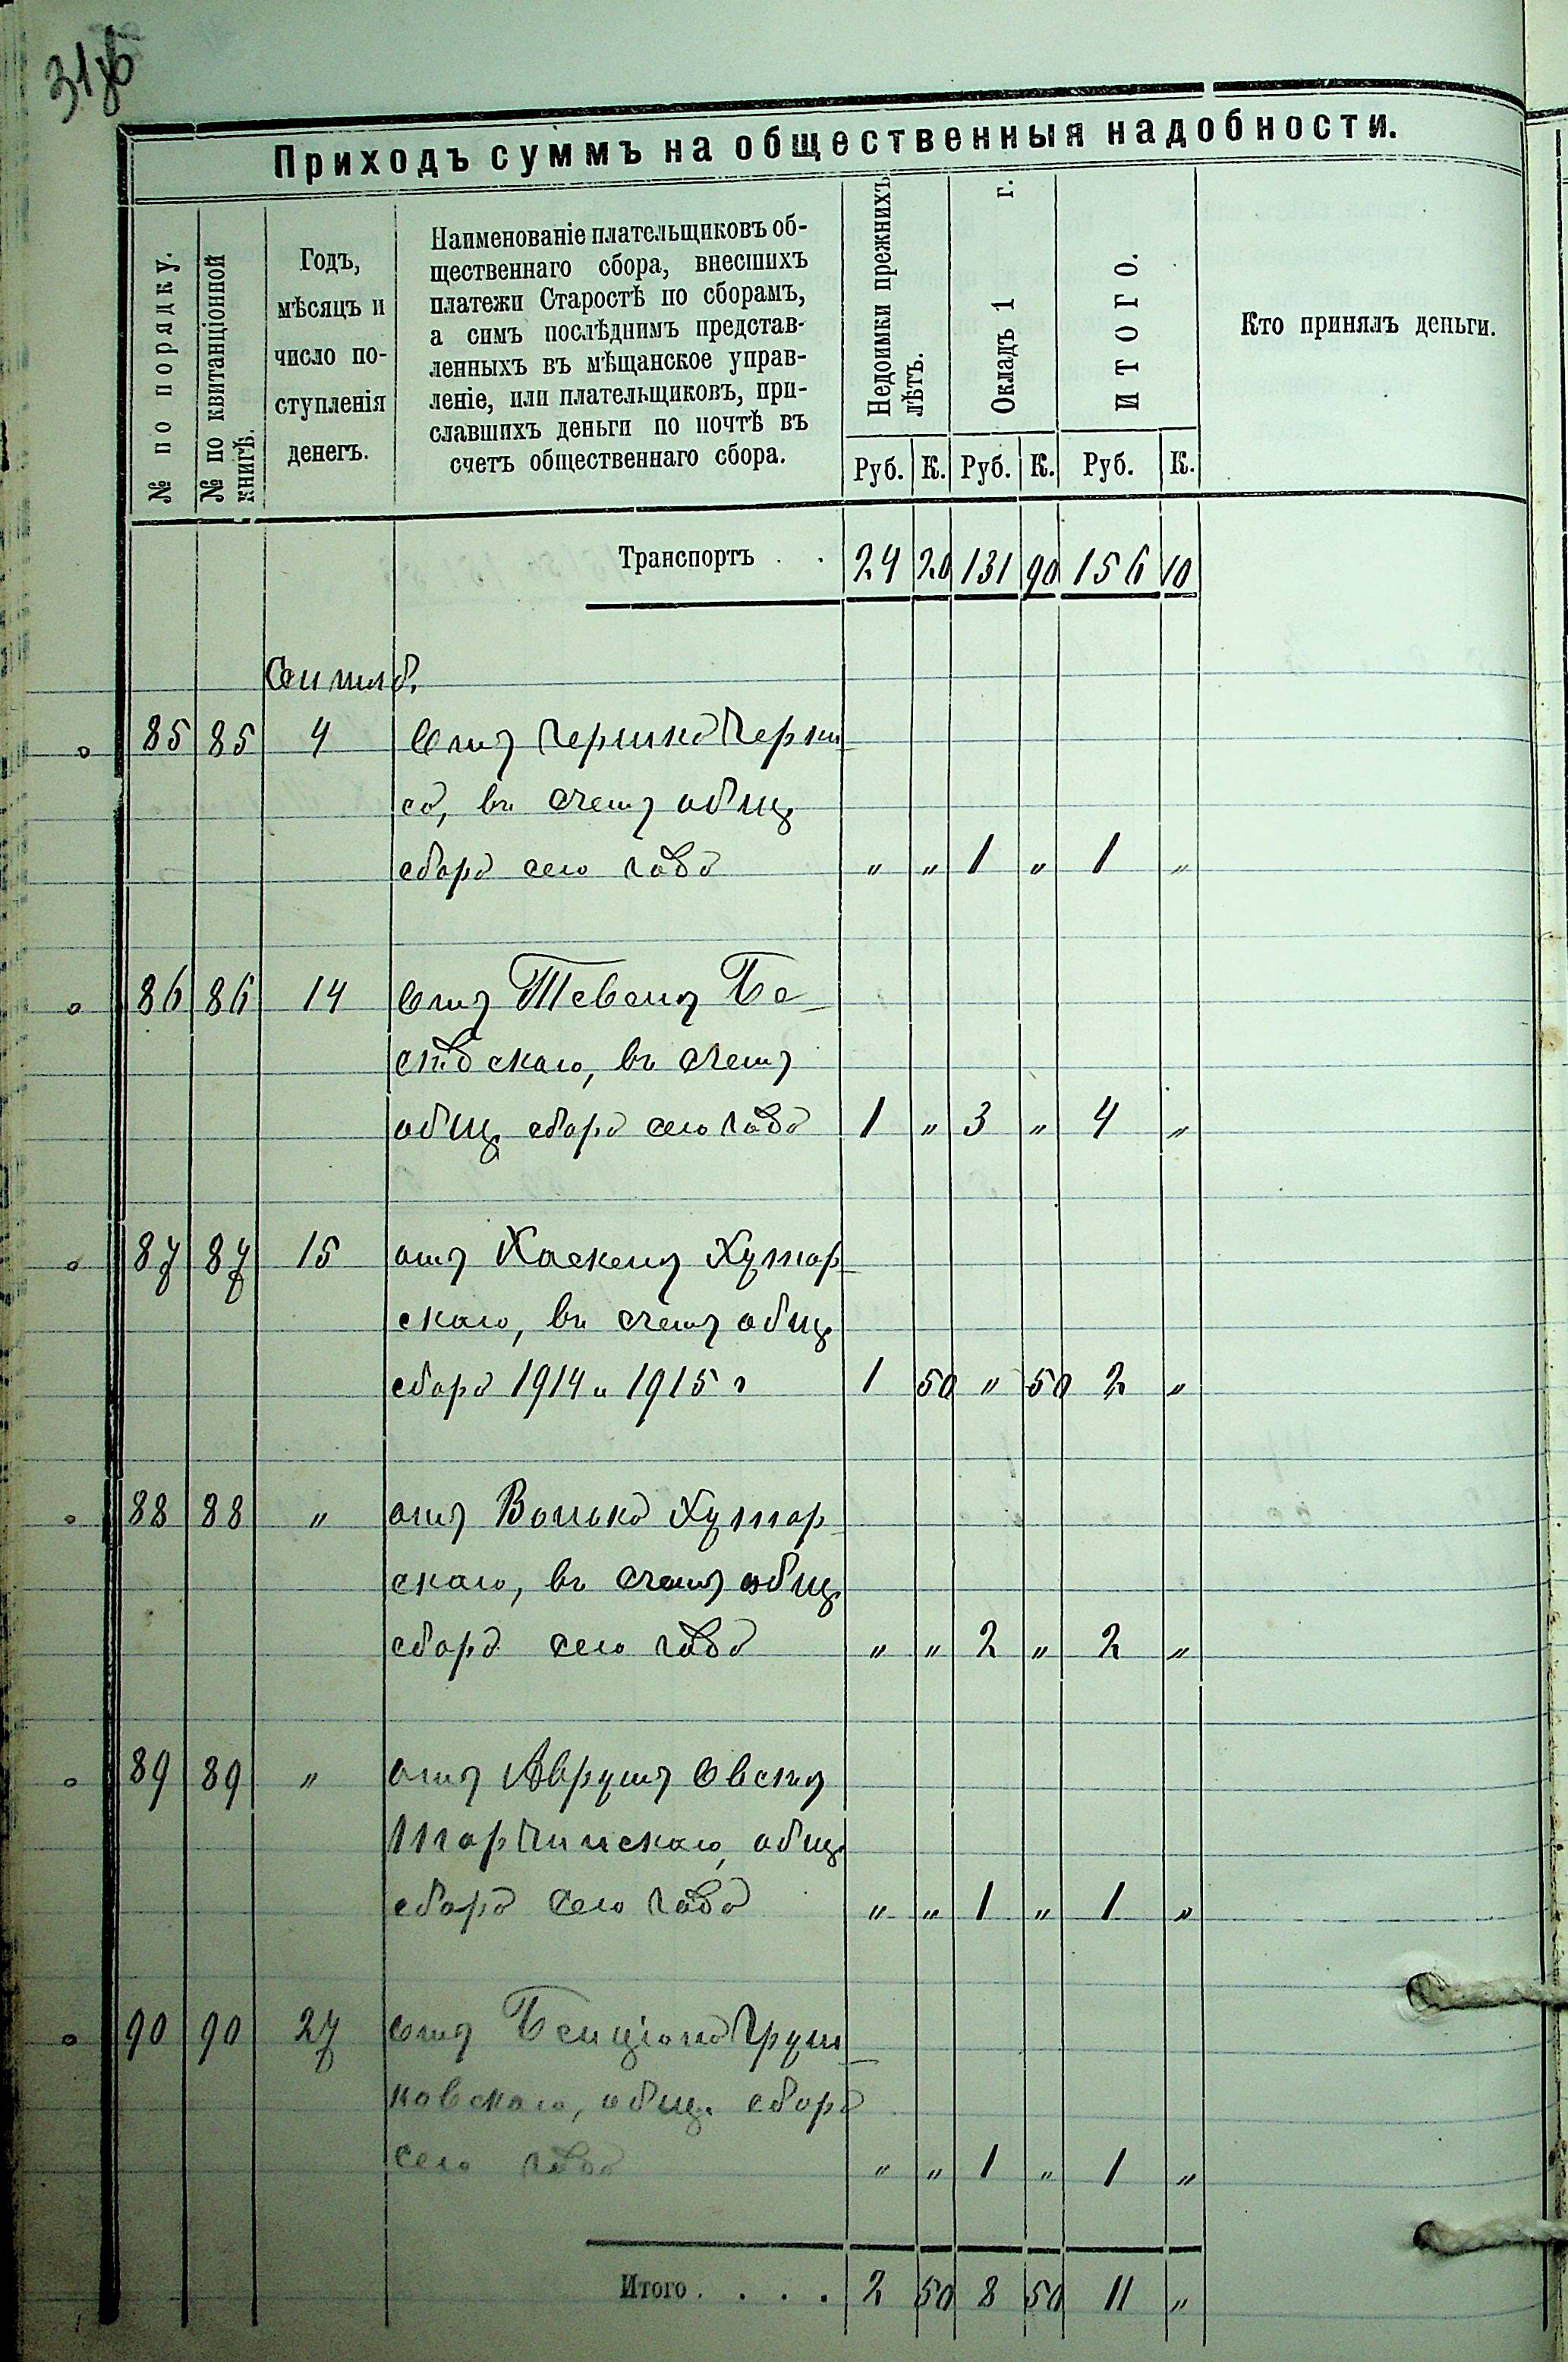 31об
Приходъ суммъ на общественныя надобности.
№ по порядку.
№ по квитанціонной книгѣ.
Годъ,
мѣсяцъ и
число по-
ступленія
денегъ.
Наименованіе плательщиковъ об-
щественнаго сбора, внесшихъ
платежи Старостѣ по сборамъ,
а симъ послѣднимъ представ-
ленныхъ въ мѣщанское управ-
леніе, или плательщиковъ, при-
славшихъ деньги по почтѣ въ
счетъ общественнаго сбора.
Недоимки прежнихъ
лѣтъ.
Окладъ 1 г.
ИТОГО.
Кто принялъ деньги.
Руб. К. Руб. К. Руб. К.
Транспортъ . . 24 20 131 90 156 10
Сентяб.
85 85 4 Отъ
са, въ счетъ общ
сбора сего года " " 1 " 1 "
86 86 14 Отъ Шевеля Бе-
скаго, въ счетъ
общ сбора сего года 1 " 3 " 4 "
87 87 15 отъ Хаскеля Хутор-
скаго, въ счетъ общ
сбора 1914 и 1915 г 1 50 " 50 2 "
88 88 " отъ Волько Хутор-
скаго, въ счетъ общ
сбора сего года " " 2 " 2 "
89 89 " отъ Аврума Овсея
Торчинскаго, общ.
сбора сего года " " 1 " 1 "
90 90 27 Отъ Бенціона Груш-
ковскаго, общ. сбора
сего года " " 1 " 1 "
Итого . . . . 2 50 8 50 11 "